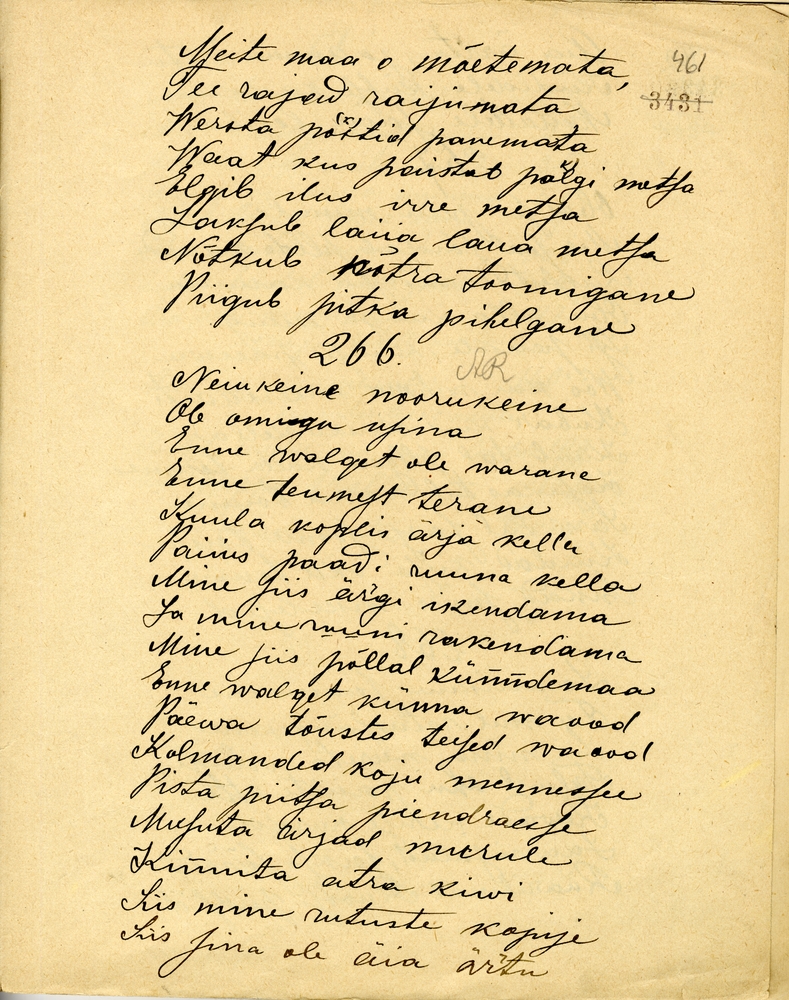 461
3431
Meite maa o mõetemata,
Tee rajad raijumata
Wersta põstid panemata
Waat kus paistab palgi metsa
Elgib ilus irre metsa
Laksub laiia laua metsa
Nõtkub nõtra toomigane
Piigub pitka pihelgane
266.
AR
Neiukeine noorukeine
Ole omigu usina
Enne walget ole warane
Enne teumest terane
Kuula koplis ärja kella
Painis paadi ruuna kella
Mine siis ärgi ikendama
Ja mine ruuni rakendama
Mine siis põllal kündemaa
Enne walget künna waood
Päewa tõustes teised waood
Kolmanded koju mennessee
Pista piitsa piendraesse
Musuta ärjad murule
Kinnita atra kiwi
Siis mine rutuste kopije
Siis sina ole äia